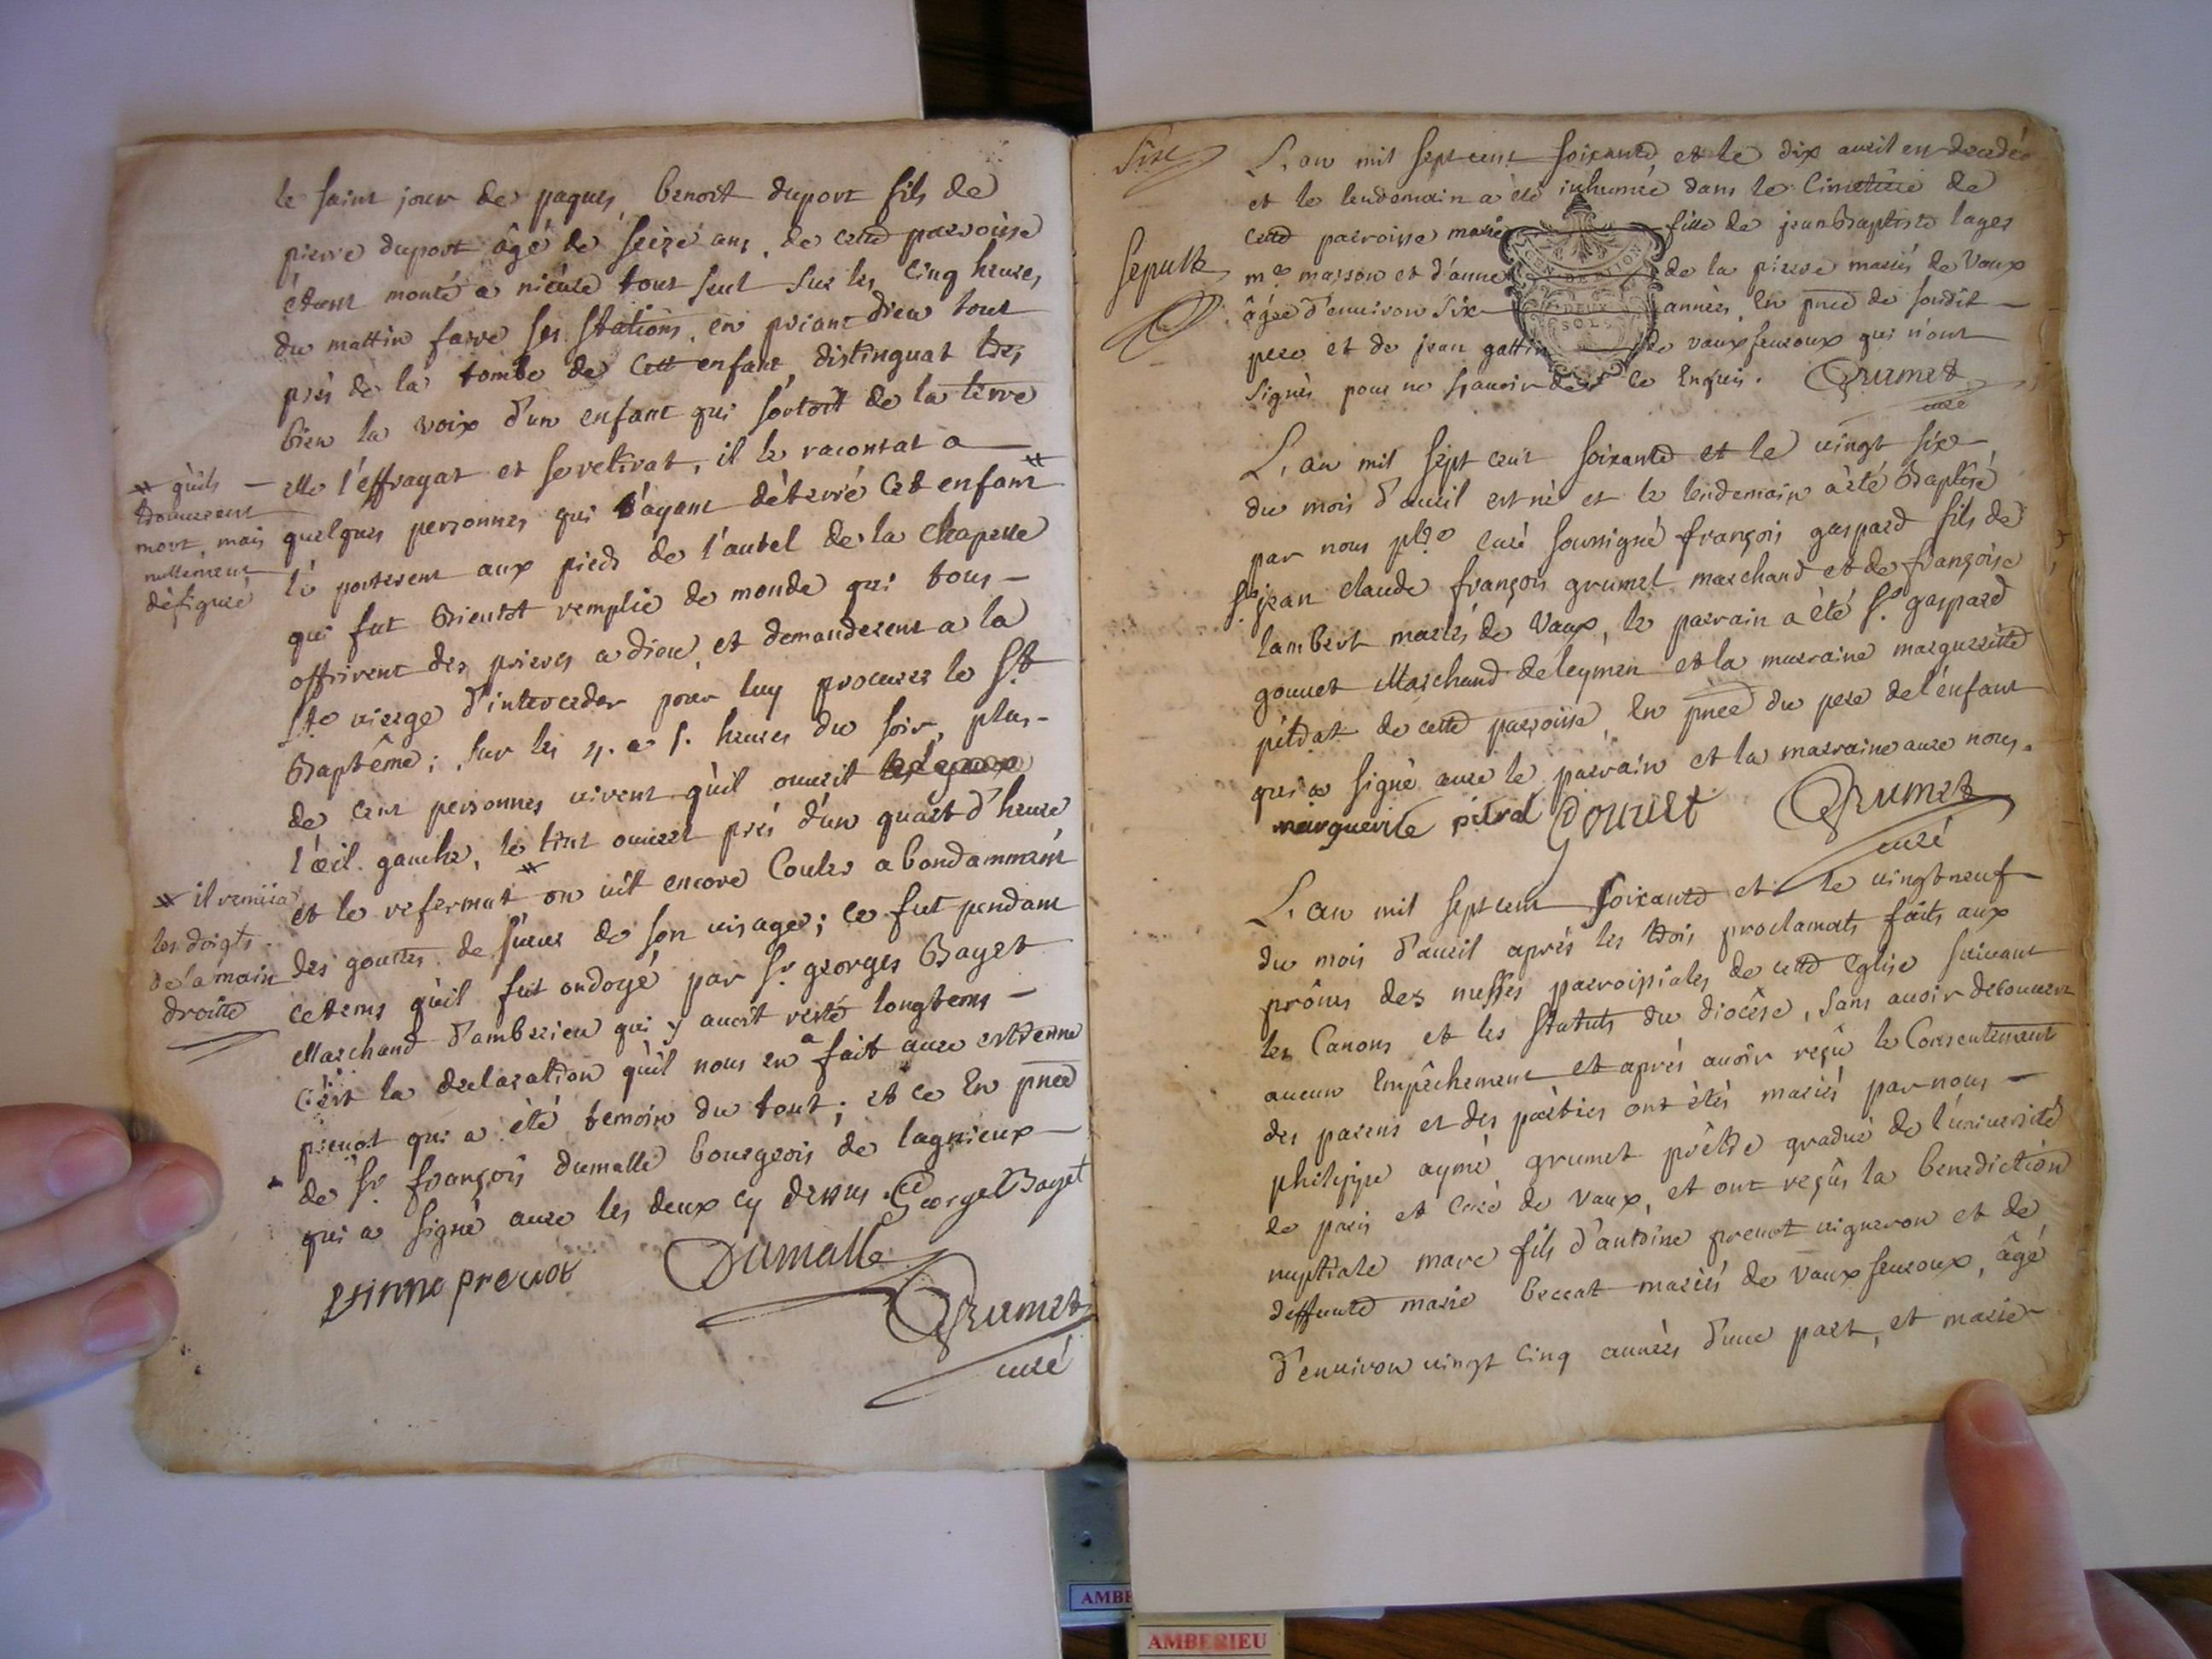 le saint jour de paques, benoit duport fils de
pierre duport âgé de seize ans, de cette parroisse
étant monté a nièure tout seul sur les cinq heures
du mattin faire ses stations, en priant dieu tout
prés de la tombe de cett enfant, distinguat tres
bien la voix d'un enfant qui sortoit de la terre
elle l'effrayat et se retirat, il le racontat a
quelques personnes qui l'ayant déterré cet enfant #
le porterent aux pieds de l'autel de la chapelle
qui fut bientot remplie de monde qui tous
offrirent des prieres a dieu, et demanderent a la
ste vierge d'interceder pour luy procurer le st
Baptême; sur les 4. a 5. heures du soir, plus-
de cent personnes virent qu'il ouvrit
l'œil gauche, le tint ouvert prés d'un quart d'heure
et le refermat # on vit encore couler abondamment
des gouttes de sueur de son visage; ce fut pendant
ce tems qu'il fut ondoyé par sr. georges Bayet
Marchand d'amberieu qui y avoit resté longtems
c'est la declaration qu'il nous en a fait avec estienne
prenot qui a été temoin du tout; et ce en pnce
de sr. françois dumalle bourgeois de lagnieux
qui a signé avec les deux cy dessus. George Bayet
Estienne prevot Dumalle
Grumet
curé
# qu'ils
trouverent
mort, mais
nullement
défiguré
# il remüa
les doigts
de la main
droitte
Sixe
L'an mil sept cent soixante, et le dix avril en decedée
et le lendemain a été inhumée dans le Cimetiere de
cette parroisse marie fille de jean Baptiste lager
Sepult
me. masson et d'anne de la pierre mariés de Vaux
âgée d'environ six années, En pnce de sondit
pere et de jean gattin de vaux fevroux qui n'ont
signés pour ne sçavoir de ce Enquis. Grumet
curé
GEN DE DION
DEUX
SOLS
L'an mil sept cent soixante et le vingt six
du mois d'avril est né et le lendemain a été Baptisé
par nous ptre curé soussigné françois gaspard fils de
sr. jean claude françois grumet marchand et de françoise
lambert mariés de Vaux, le parrain a été sr. gaspard
gouvet Marchand de leymen et la marraine margueritte
pitrat de cette parroisse, En pnce du pere de l'enfant
qui a signé avec le parrain et la marraine avec nous.
marguerite pitrat Gouvet Grumet
curé
L'an mil sept cent soixante et le vingt neuf
du mois d'avril aprés les trois proclamats faits aux
prônes des messes parroissiales de cette Eglise suivant
les Canons et les statuts du diocèse, sans avoir decouvert
aucun Empêchement et aprés avoir reçû le Consentement
des parens et des parties ont étés mariés par nous
philippe aymé grumet prêtre gradué de l'université
de paris et curé de Vaux, et ont reçûs la benediction
nuptiale marc fils d'antoine prenot vigneron et de
deffunte marie beccat mariés de Vaux fevroux, âgé
d'environ vingt cinq années d'une part, et marie
AMBE
AMBERIEU